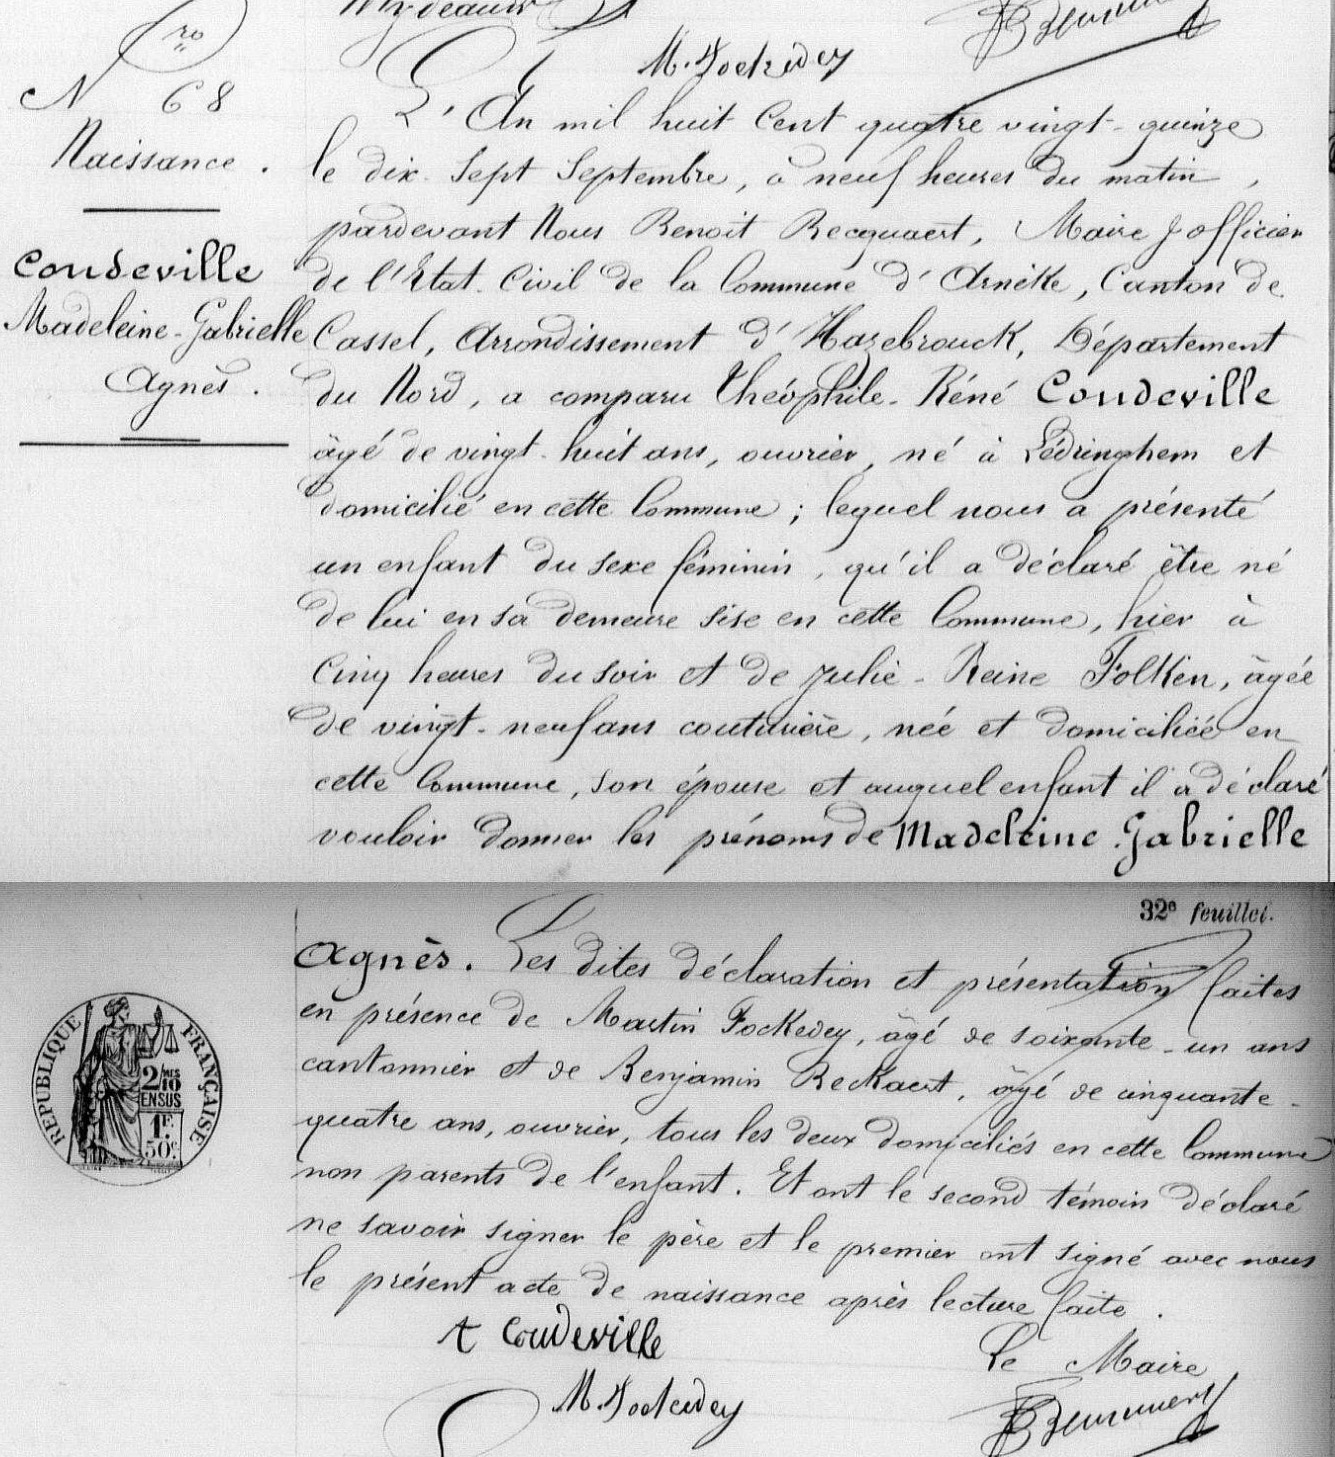 M. Fockedey
N ro 68
Naissance.
Coudeville
Madeleine-Gabrielle
Agnès.
L'An mil huit Cent quatre vingt-quinze
le dix-Sept Septembre, à neuf heures du matin,
pardevant Nous Benoit Becquaert, Maire & officier
de l'Etat-Civil de la Commune d'Arnèke, Canton de
Cassel, Arrondissement d'Hazebrouck, Département
du Nord, a comparu Théophile-Réné Coudeville
âgé de vingt-huit ans, ouvrier, né à Lédringhem et
domicilié en cette Commune; lequel nous a présenté
un enfant du sexe féminin, qu'il a déclaré être né
de lui en sa demeure sise en cette Commune, hier à
Cinq heures du soir et de Julie-Reine Folken, âgée
de vingt-neuf ans couturière, née et domiciliée en
cette Commune, son épouse et auquel enfant il a déclaré
vouloir donner les prénoms de Madeleine-Gabrielle
32e feuillet.
Agnès. Les dites déclaration et présentation faites
en présence de Martin Fockedey, âgé de soixante-un ans
cantonnier et de Benjamin Beckaert, âgé de cinquante-
quatre ans, ouvrier, tous les deux domiciliés en cette Commune
non parents de l'enfant. Et ont le second témoin déclaré
ne savoir signer le père et le premier ont signé avec nous
le présent acte de naissance après lecture faite.
REPUBLIQUE FRANÇAISE
2/10 MES
EN SUS
1F.
50c.
t Coudeville
Le Maire
M. Fockedey